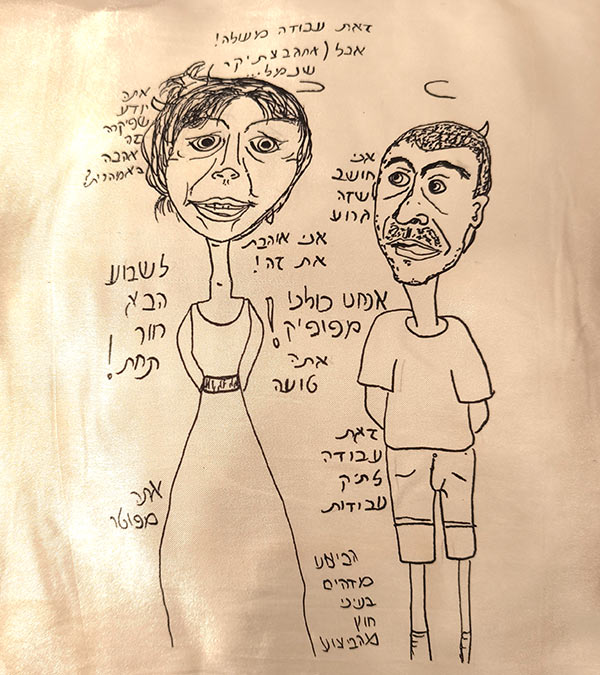 זאת עבודה מעולה!
אבל
אתה
יודע
שפיקרה
זה
אהבה
באמהרית?
אני
חושב
שזה
גרוע
אני אוהבת
את זה!
לשבוע
הבא
חור
תחת!
אנחנו כולנו
מפופיק!
אתה
טועה
זאת
עבודה
לתיק
עבודות
אתה
מפוטר
הביצוע
מדהים
בעיני
חוץ
מהביצוע